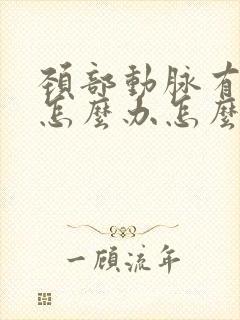 頸部動脉有
怎麼办怎麼
一顧流年